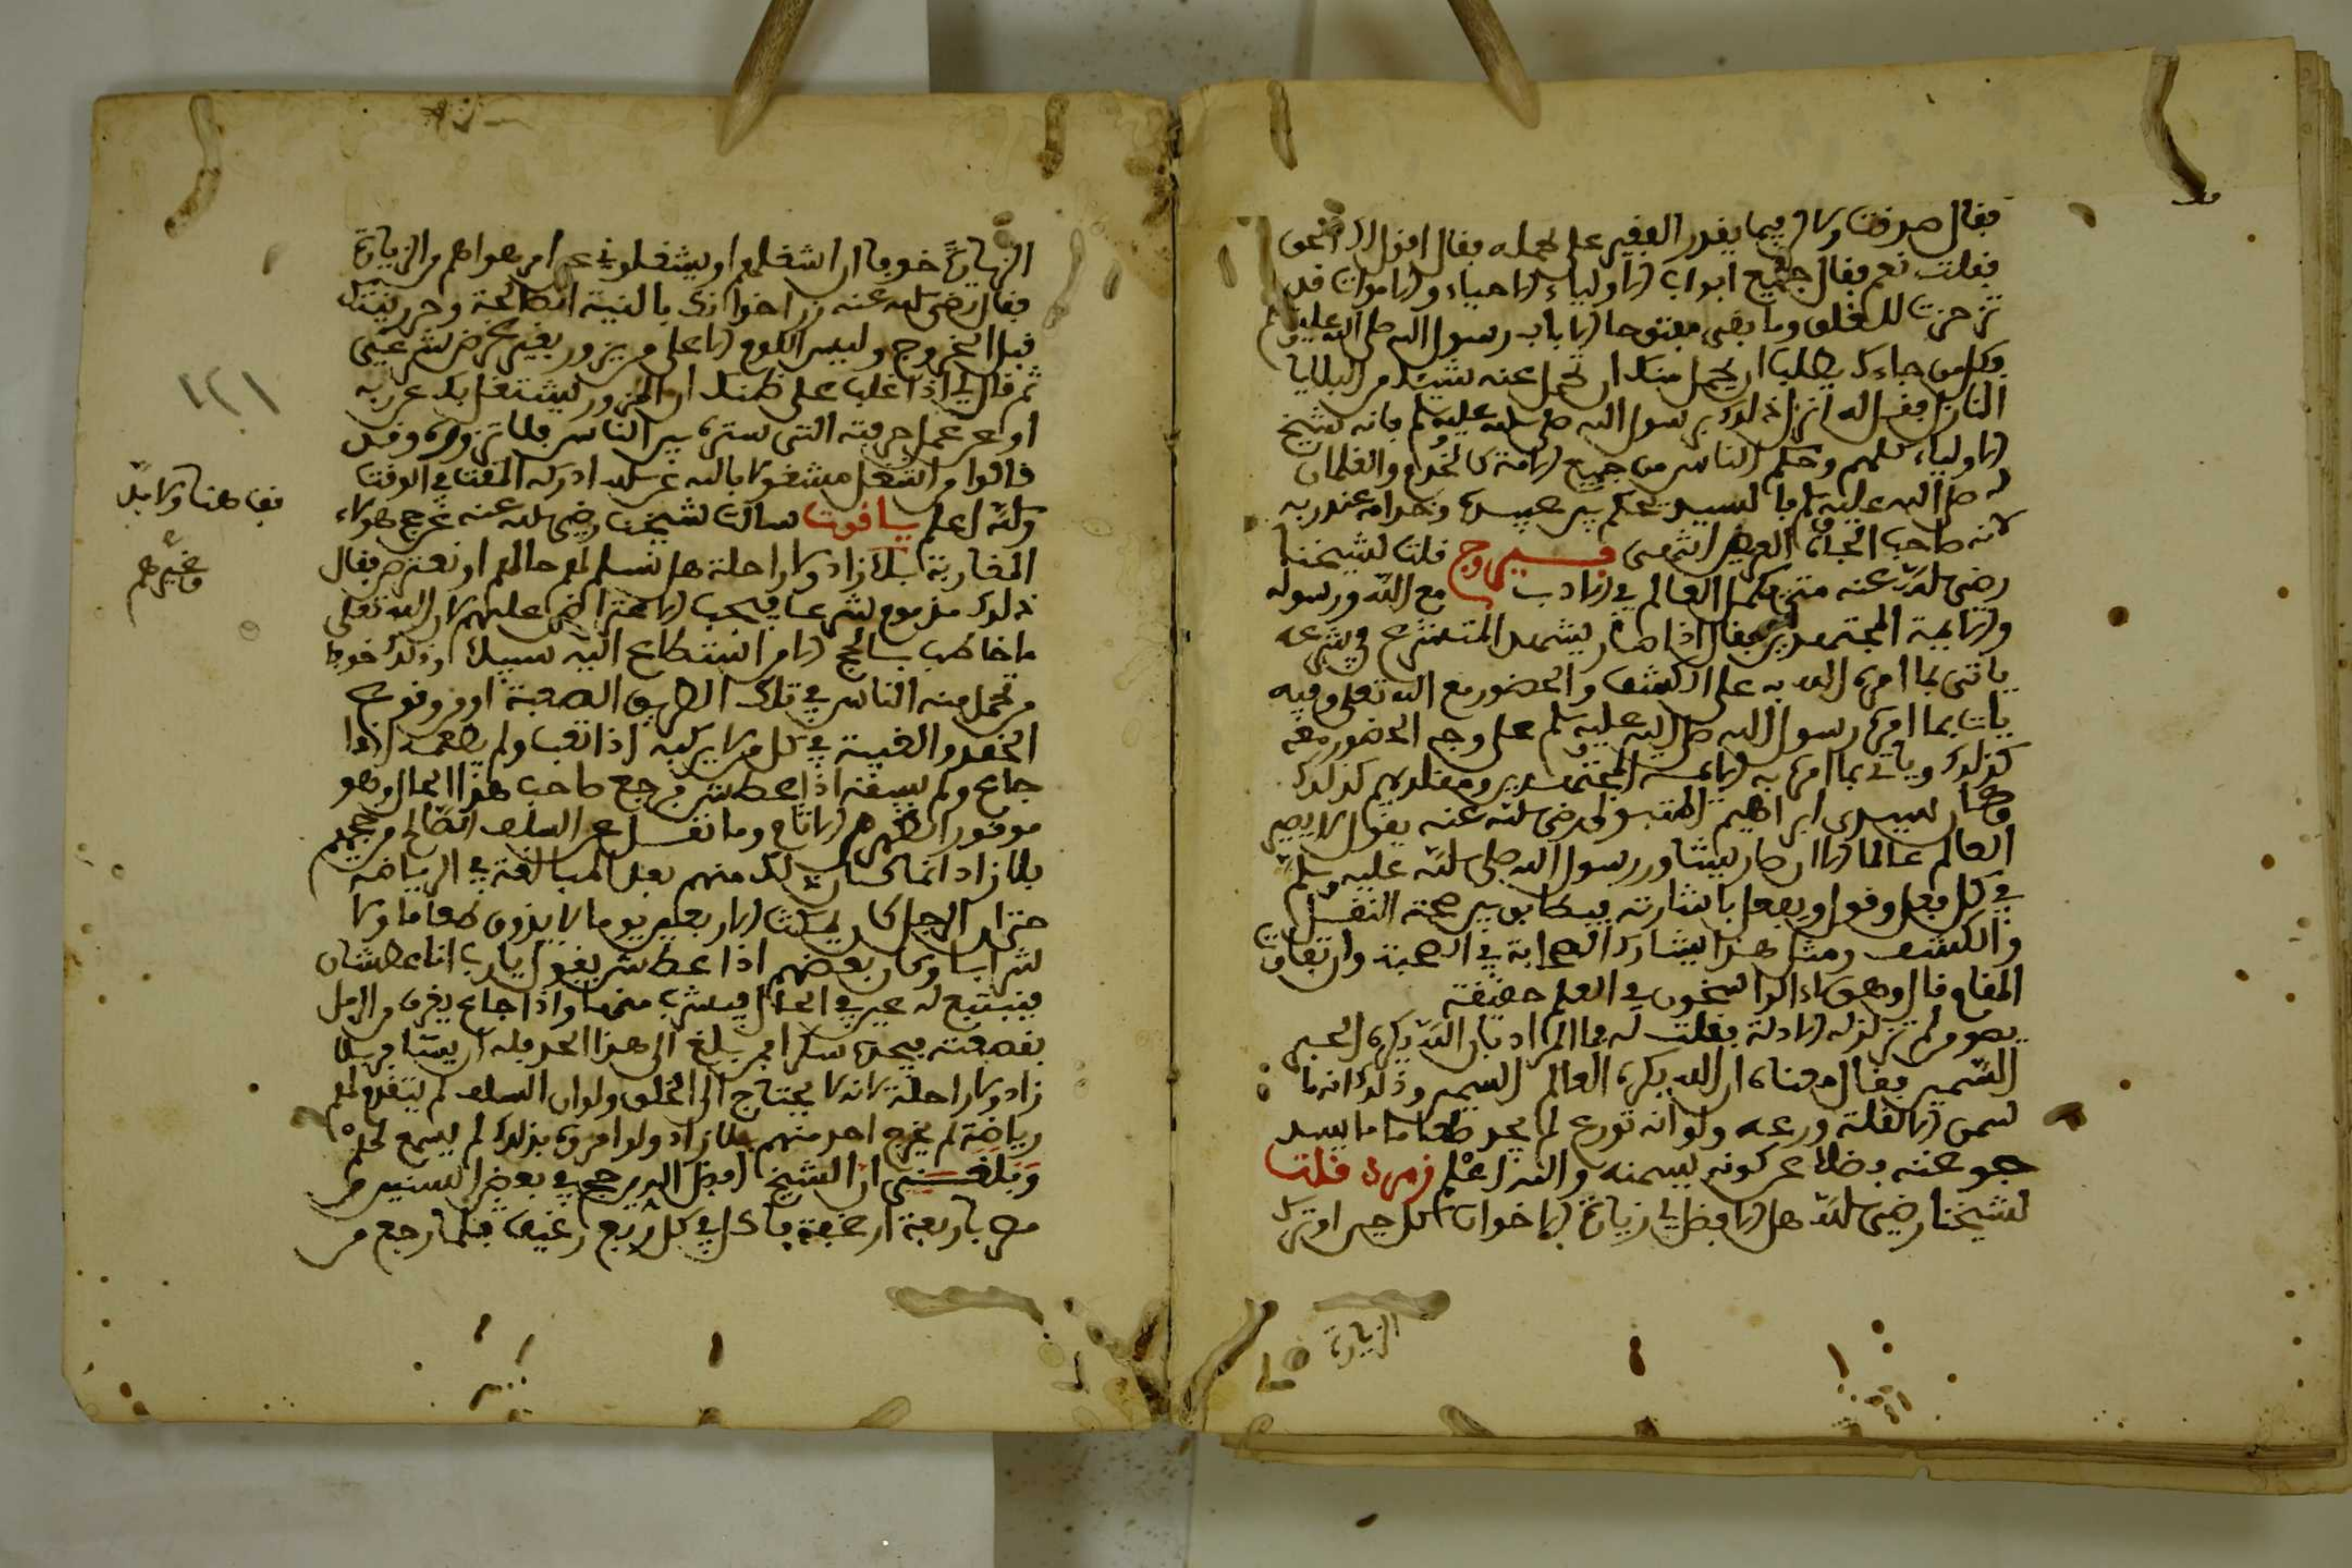 فقال صدقت ولاكن فيما يقدر الفقير على حمله فقال اقول لك الحق
فقلت نعم فقال جميع ابواب الاولياء الاحياء والاموات قد
تزحزحت للغلق وما بقى مفتوحا الا باب رسول الله صلى الله عليه وسلم
فكل من جاءك يطلب ان يحمل منك او تحمل عنه شيئا من البلايا
النازلة فقل له انزل ذلك برسول الله صلى الله عليه وسلم فانه شيخ
الاولياء كلهم وحكم الناس من جميع الامة كالخدم والغلمان
له صلى الله عليه وسلم فالسيد يحكم بين عبيده وخدامه عند ربه
لانه صاحب الجاه العظيم انتهى فيروج قلت لشيخنا
رضي الله عنه متى يكمل العالم في الادب مع الله ورسوله
والايمة المجتهدين فقال اذا صار يشهد المتشرع في شرعه
ياتي بما امره الله به على الكشف والحضور مع الله تعلى وفيه
يات بما امره رسول الله صلى الله عليه وسلم على وجه الحضور معه
كذلك وياتي بما امره به الايمة المجتهدين ومقلديهم كذلك
وكان سيدي ابراهيم المتبولي رضي الله عنه يقول لا يصير
العالم عالما الا ان صار يشاور رسول الله صلى الله عليه وسلم
في كل فعل وقول ويفعل باشارته فيطابق بين صحة النقل
والكشف ومثل هذا يشارك الصحابة في الصحبة وارتفاع
المقام قال وهؤلاء الراسخون في العلم حقيقة
فهو ممن لم تزلزله الادلة فقلت له فما المراد بان الله يكره الحبر
السمين فقال معناه ان الله يكره العالم السمين وذلك انه ما
سمن الا لقلة ورعه ولو انه تورع لم يجد طعاما ما يسد
جوعته فضلا عن كونه يسمنه والله اعلم زمرد قلت
لشيخنا رضي الله هل الافضل لي زيارة الاخوان كل حين او ترك
الزيارة
الزيارة خوفا ان اشغلهم او يشغلوني عن امر هو اهم من الزيارة
فقال رضي الله عنه زر اخوانك بالنية الصالحة وحرر نيتك
قبل الخروج وليس اللوم الا على من يزور بغير غرض شرعي
ثم قال لي اذا غلب على ظنك ان المزور ليشتغل بك عن ربه
او عن عمل حرفته التي ستره بين الناس فلا تزوره وقد
قالوا من اشغل مشغولا بالله عن الله ادركه المقت في الوقت
والله اعلم ياقوت سالت شيخنا رضي الله عنه عن حج هؤلاء
المغاربة بلا زاد ولا راحلة هل نسلم لهم حالهم او نعترض فقال
ذلك مذموم شرعا فيجب الاعتراض عليهم لان الله تعلى
ما خاطب بالحج الا من استطاع اليه سبيلا وذلك خوفا
من تحمل منه الناس في تلك الطريق الصعبة او من وقوع
الحقد والغيبة في كل من لا يركبه اذا تعب ولم يطعمه اذا
جاع ولم يسقه اذا عطش فرجع صاحب هذا الحال وهو
موقور الظهر من الاثام وما نقل عن السلف الصالح من حجهم
بلا زاد انما كان ذلك منهم بعد المبالغة في الرياضة
حتى ان الرجل كان يمكث الاربعين يوما لا يذوق طعاما ولا
شرابا وكان بعضهم اذا عطش يقول يارب انا عطشان
فينبع له عين في الحال فيشرب منها واذا جاع يغرف من الرمل
بقصعته فيجده سكرا فمن بلغ الى هذا الحد فله ان يسافر بلا
زاد ولا راحلة لانه لا يحتاج الى الخلق ولو ان السلف لم يتقدم لهم
رياضة لم يخرج احد منهم بلا زاد ولو امروه بذلك لم يسمع لهم
وبلغني ان الشيخ افضل الدين حج في بعض السنين من
مصر باربعة ارغفة فاكل في كل ربع رغيف فلما رجع من
١٢١
قف هنا ولا بد